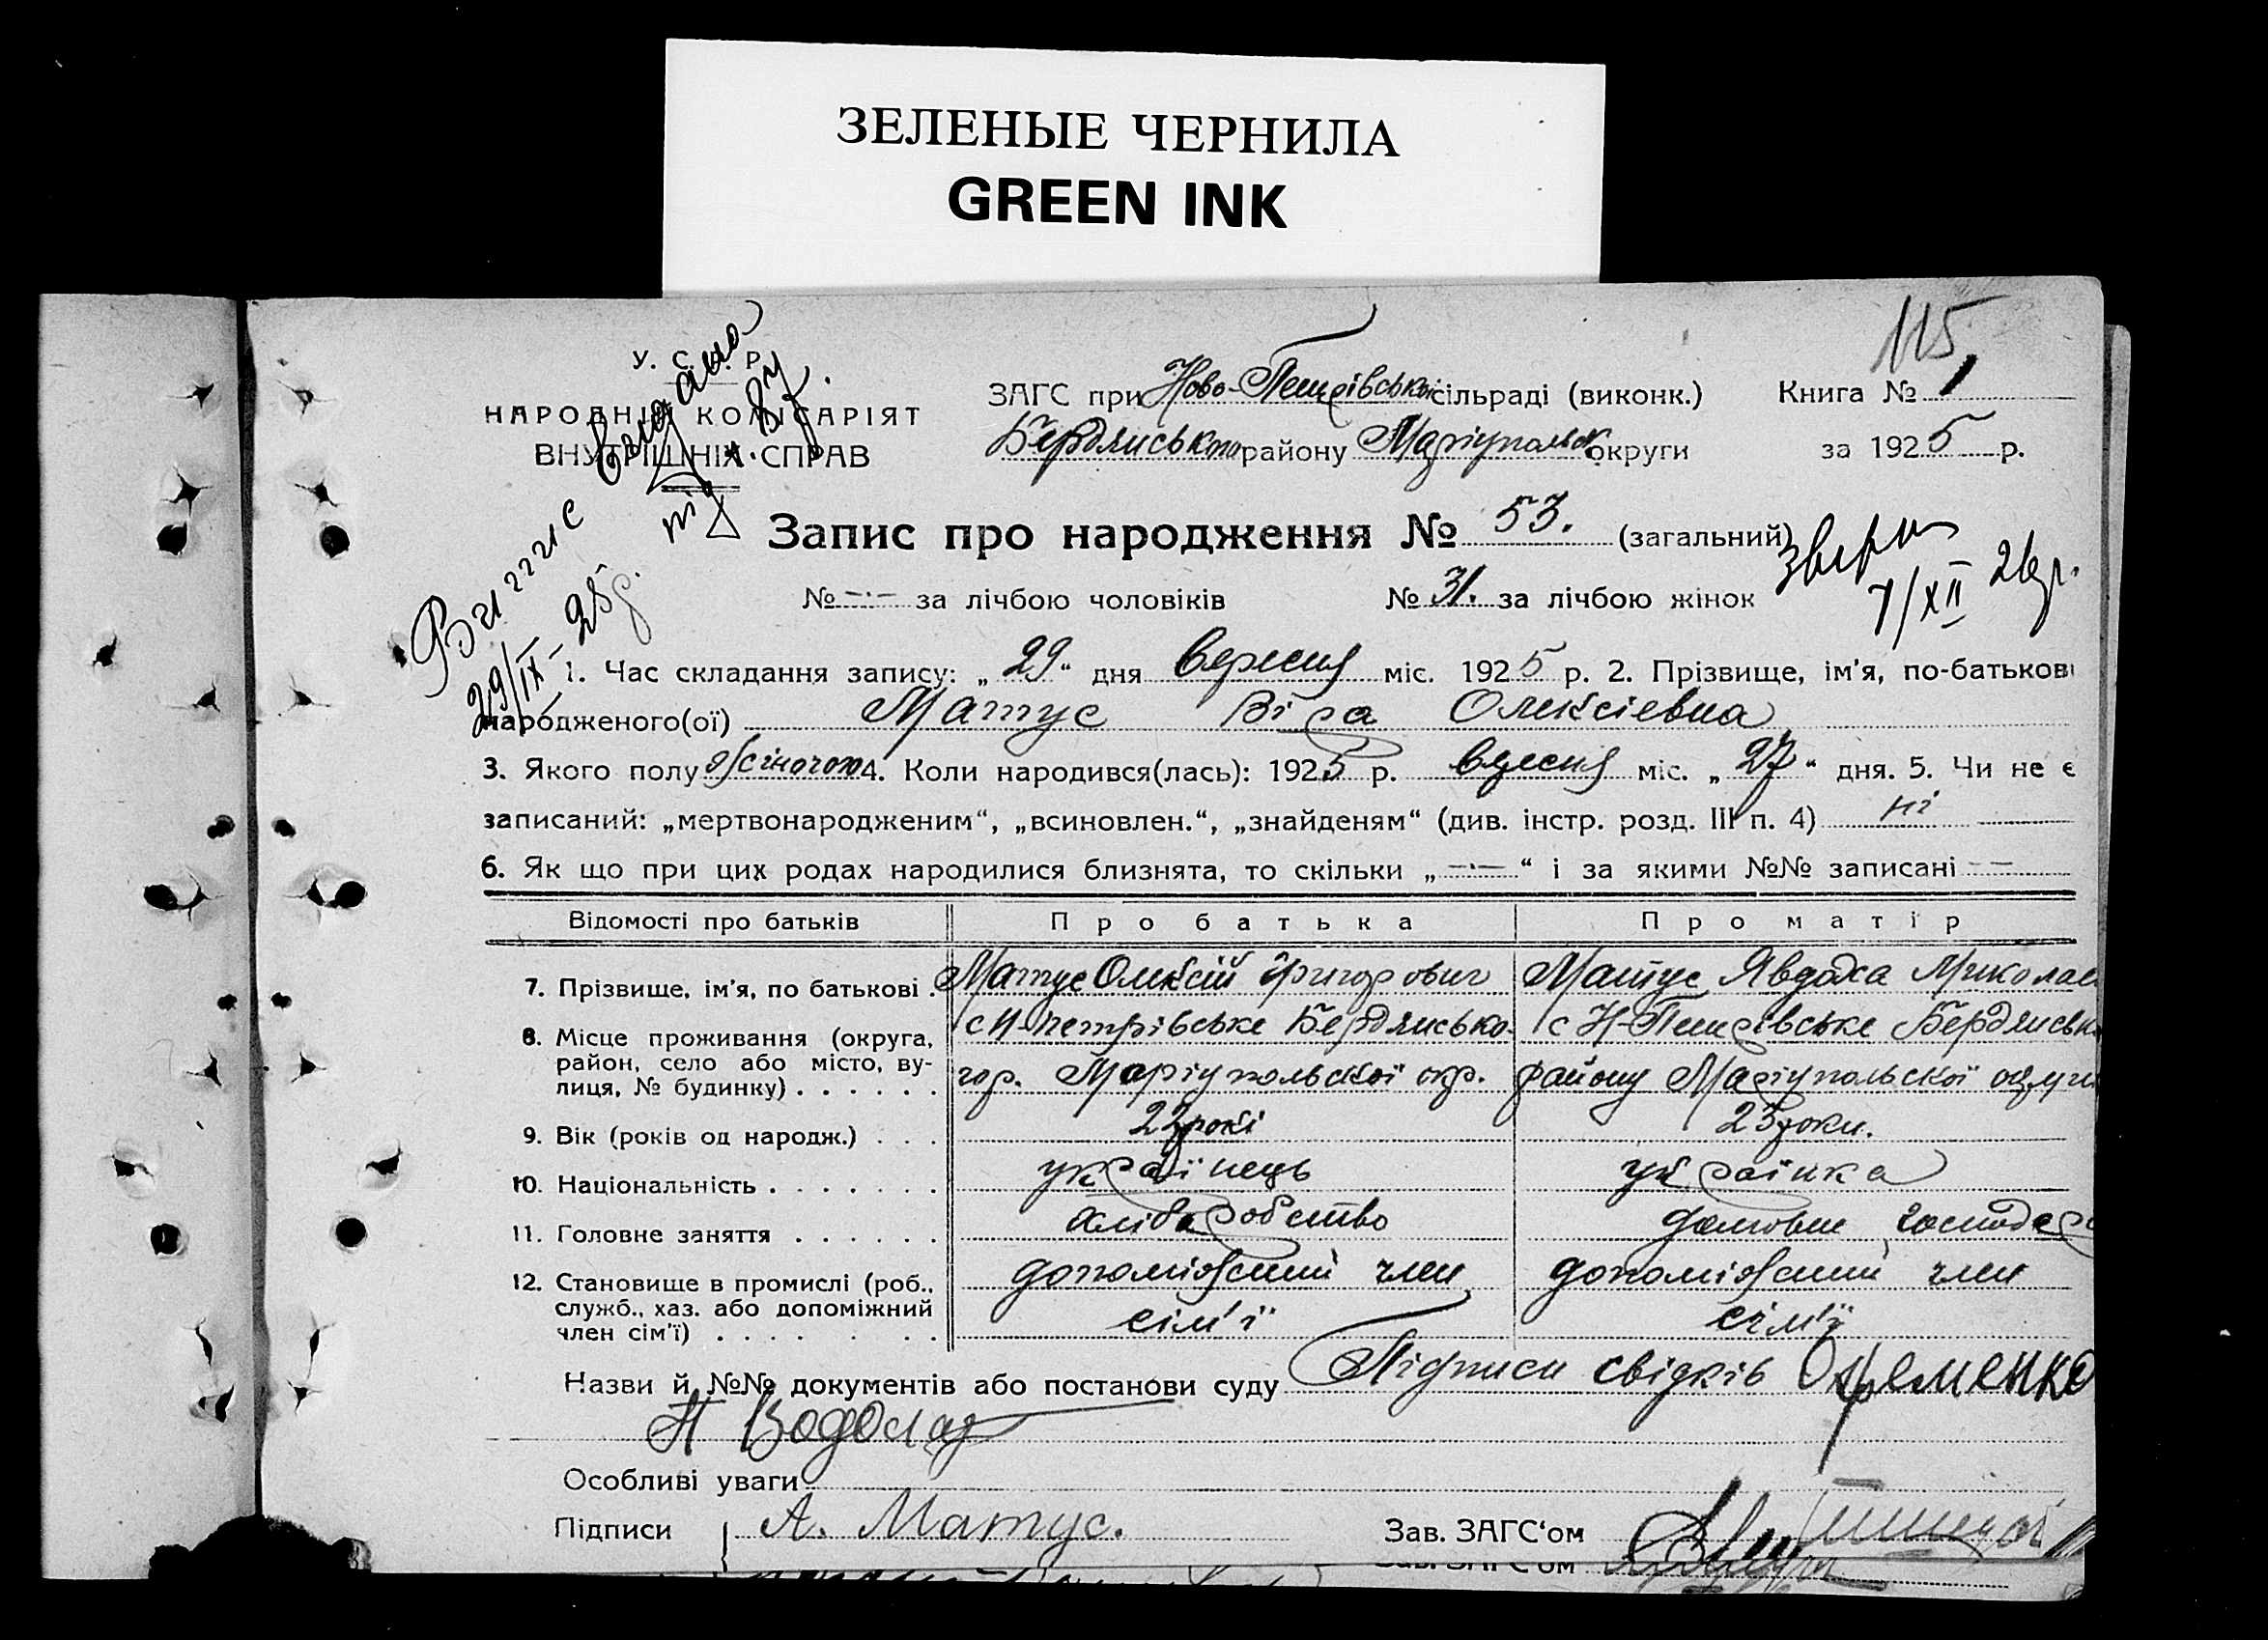 ЗЕЛЕНЫЕ ЧЕРНИЛА
GREEN INK
115
У. С. Р. Р.
НАРОДНІЙ КОМІСАРІЯТ
ВНУТРІШНІХ СПРАВ
ЗАГС при Ново-Петрівськой сільраді (виконк.) Книга № 1
Бердянського району Маріупольск округи за 1925 р.
Виписс видано
29/IX-25р.
Запис про народження № 53. (загальний)
7/XII 26р.
№ -·- за лічбою чоловіків № 31. за лічбою жінок
1. Час складання запису: „29“ дня вересня міс. 1925 р. 2. Прізвище, ім'я, по-батькові
народженого(ої) Матус Віра Олексіевна
3. Якого полу жіночого 4. Коли народився(лась): 1925 р. вресня міс. „27“ дня. 5. Чи не є
записаний: „мертвонародженим“, „всиновлен.“, „знайденям“ (див. інстр. розд. III п. 4) ні
6. Як що при цих родах народилися близнята, то скільки „-·-“ і за якими №№ записані - -
Відомості про батьків Про батька Про матір
7. Прізвище, ім'я, по батькові . Матус Олексій Григорович Матус Явдоха Миколаев
8. Місце проживання (округа, район, село або місто, вулиця, № будинку) . . . . . .
с Н-Петрівське Бердянсько- с Н-Петрівське Бердянськ
гор. Маріупольської окр. району Маріупольської округи
9. Вік (років од народж.) . . . 22 рокі 23 роки.
10. Національність . . . . . . . українець українка
11. Головне заняття . . . . . . хліборобство домовне господар
12. Становище в промислі (роб., служб., хаз. або допоміжний член сім'ї) . . . . . . .
допоміжний член допоміжний член
сім'ї сім'ї
Назви й №№ документів або постанови суду Підписи свідків Охременко
Н Водолаз
Особливі уваги
Підписи А. Матус. Зав. ЗАГС'ом
Зав. ЗАГС'ом